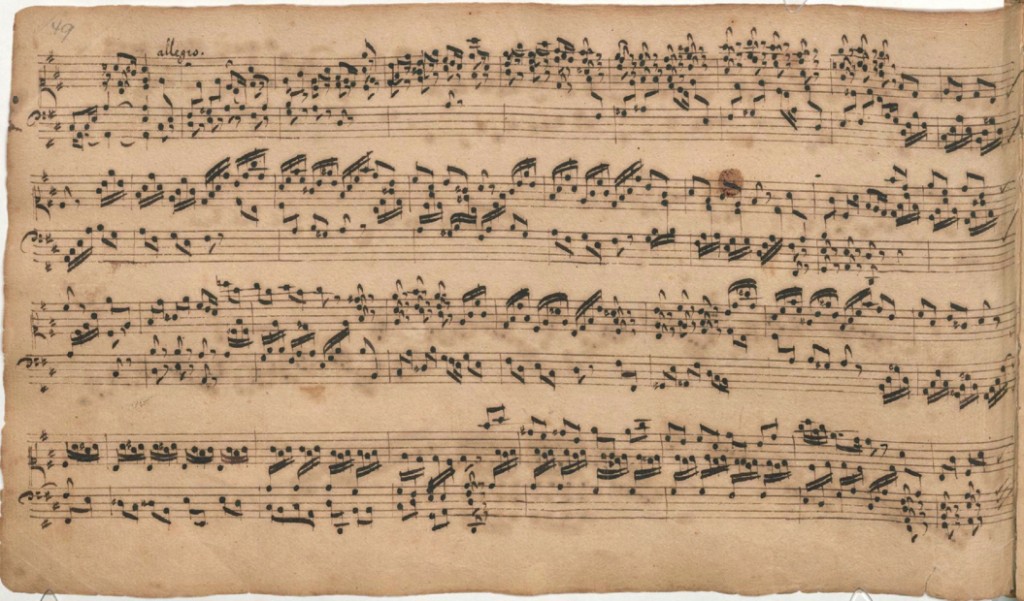 49
allegro.